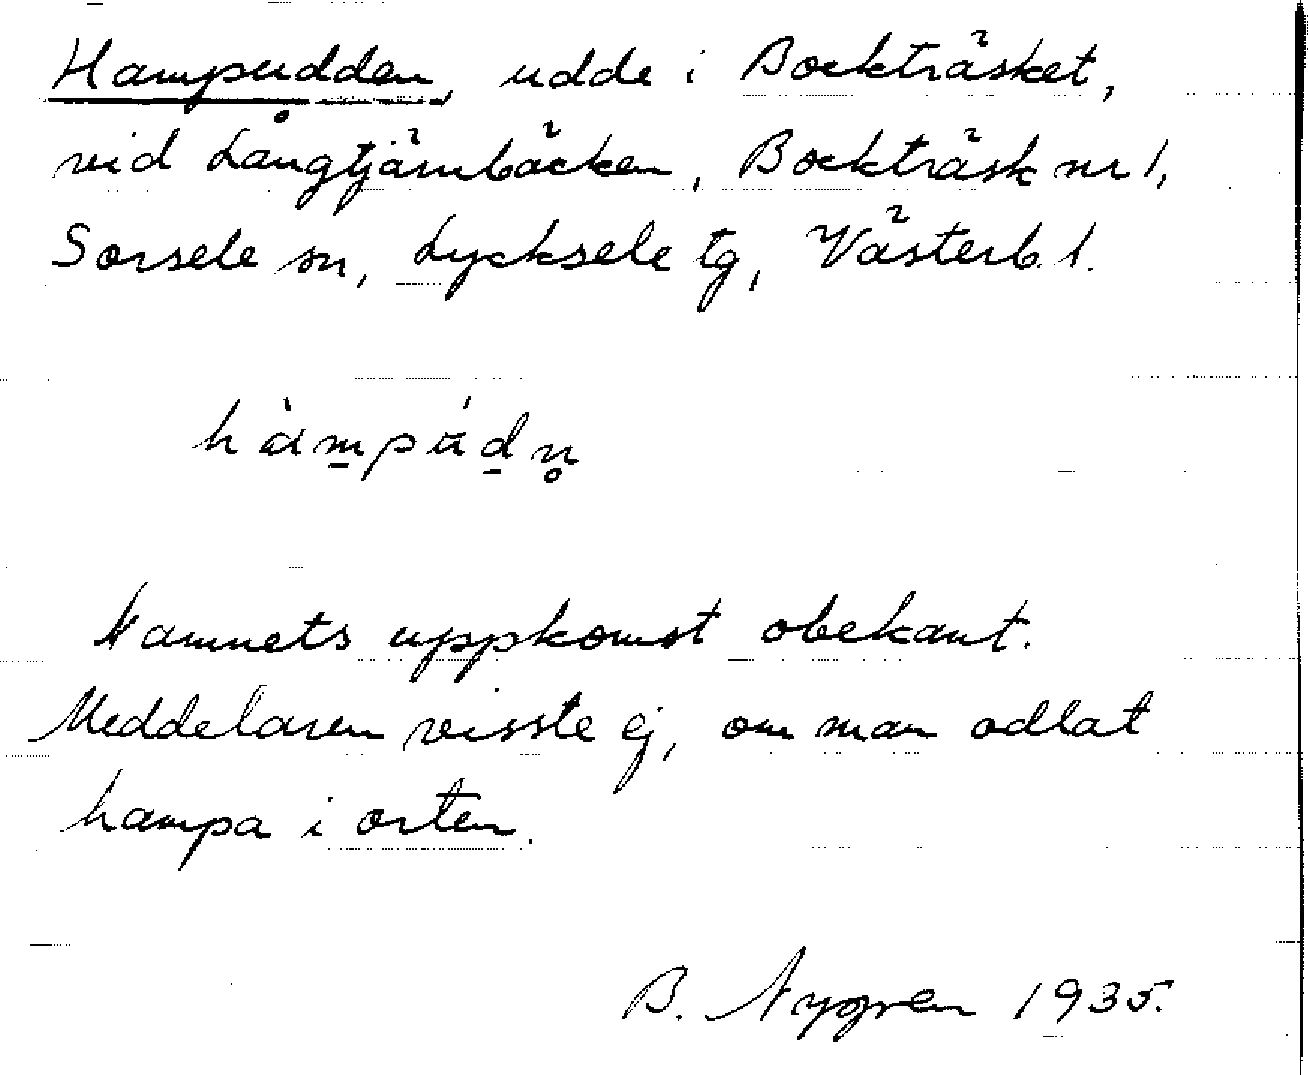 Hampudden, udde i Bockträsket,
vid Långtjärnbäcken, Bockträsk nr 1,
Sorsele sn, Lycksele tg, Västerb. l.
hàmpádn̥
Namnets uppkomst obekant.
Meddelaren visste ej, om man odlat
hampa i orten.
B. Nygren 1935.